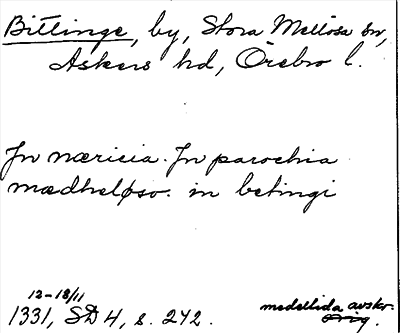 Bittinge, by, Stora Mellösa sn,
Askers hd, Örebro l.
Jn næricia. Jn parochia
mædheløso. in betingi
12-18/11
1331, SD 4, s. 272.
medeltida avskr.
orig.